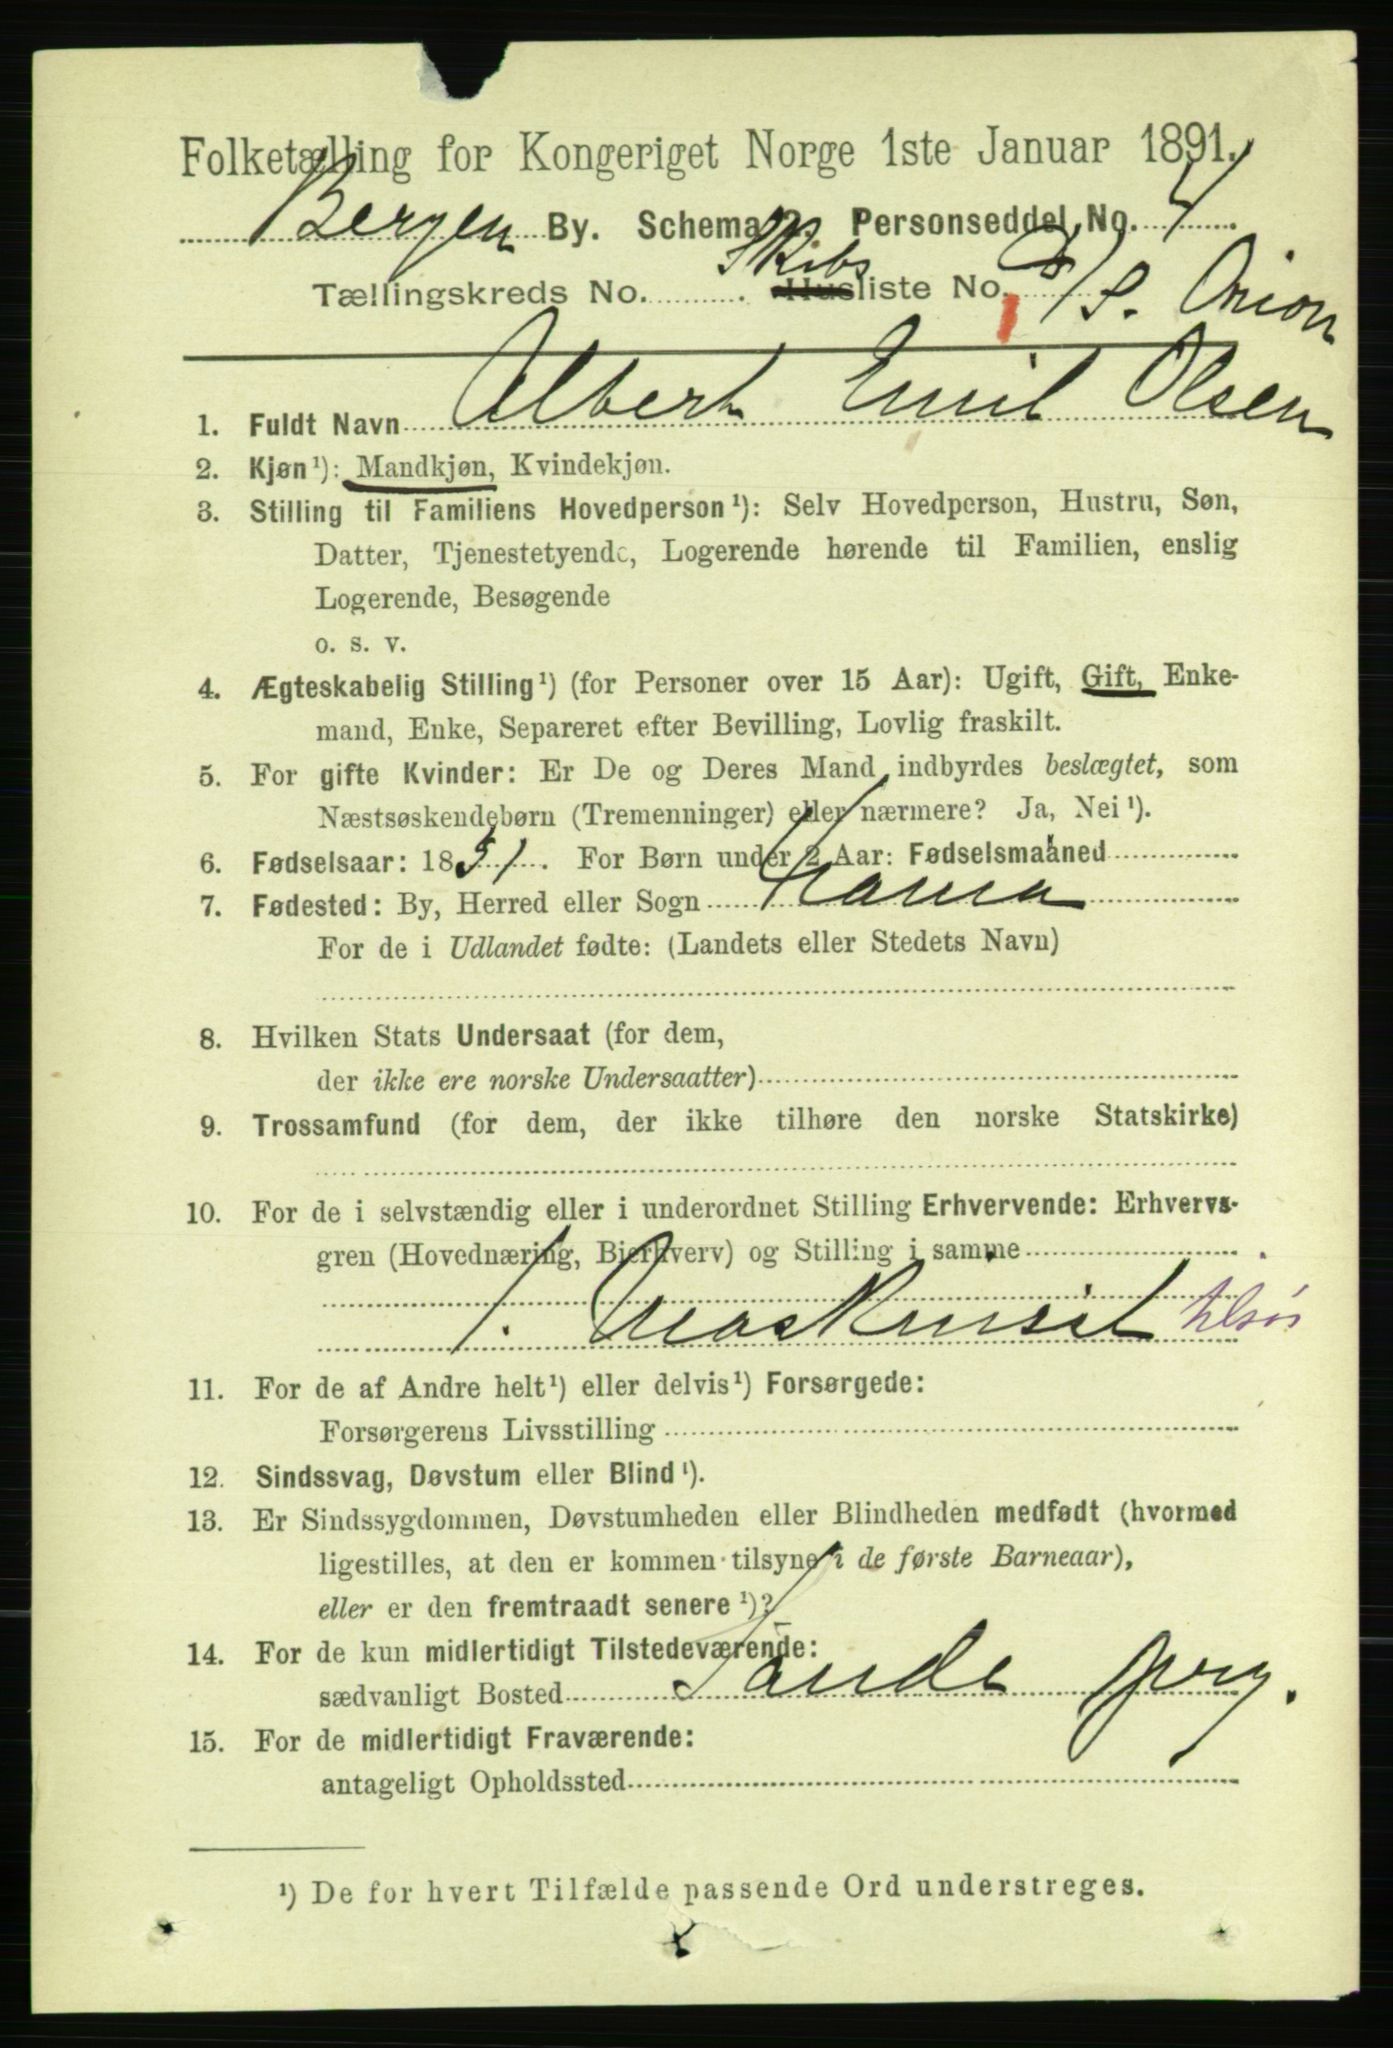 Folketælling for Kongeriget Norge 1ste Januar 1891.
Bergen By. Schema 2. Personseddel No. 4.
Skibs
Tællingskreds No. . Husliste No. D/S. Orion
1. Fuldt Navn Albert Emil Olsen
2. Kjøn¹): Mandkjøn, Kvindekjøn.
3. Stilling til Familiens Hovedperson¹): Selv Hovedperson, Hustru, Søn,
Datter, Tjenestetyende, Logerende hørende til Familien, enslig
Logerende, Besøgende
o. s. v.
4. Ægteskabelig Stilling¹) (for Personer over 15 Aar): Ugift, Gift, Enke-
mand, Enke, Separeret efter Bevilling, Lovlig fraskilt.
5. For gifte Kvinder: Er De og Deres Mand indbyrdes beslægtet, som
Næstsøskendebørn (Tremenninger) eller nærmere? Ja, Nei¹).
6. Fødselsaar: 1851. For Børn under 2 Aar: Fødselsmaaned
7. Fødested: By, Herred eller Sogn
For de i Udlandet fødte: (Landets eller Stedets Navn)
8. Hvilken Stats Undersaat (for dem,
der ikke ere norske Undersaatter)
9. Trossamfund (for dem, der ikke tilhøre den norske Statskirke)
10. For de i selvstændig eller i underordnet Stilling Erhvervende: Erhvervs-
gren (Hovednæring, Bierhverv) og Stilling i samme
1. Maskinist tilsøs
11. For de af Andre helt¹) eller delvis¹) Forsørgede:
Forsørgerens Livsstilling
12. Sindssvag, Døvstum eller Blind¹).
13. Er Sindssygdommen, Døvstumheden eller Blindheden medfødt (hvormed
ligestilles, at den er kommen tilsyne i de første Barneaar),
eller er den fremtraadt senere¹)?
14. For de kun midlertidigt Tilstedeværende:
sædvanligt Bosted Sande
15. For de midlertidigt Fraværende:
antageligt Opholdssted
¹) De for hvert Tilfælde passende Ord understreges.